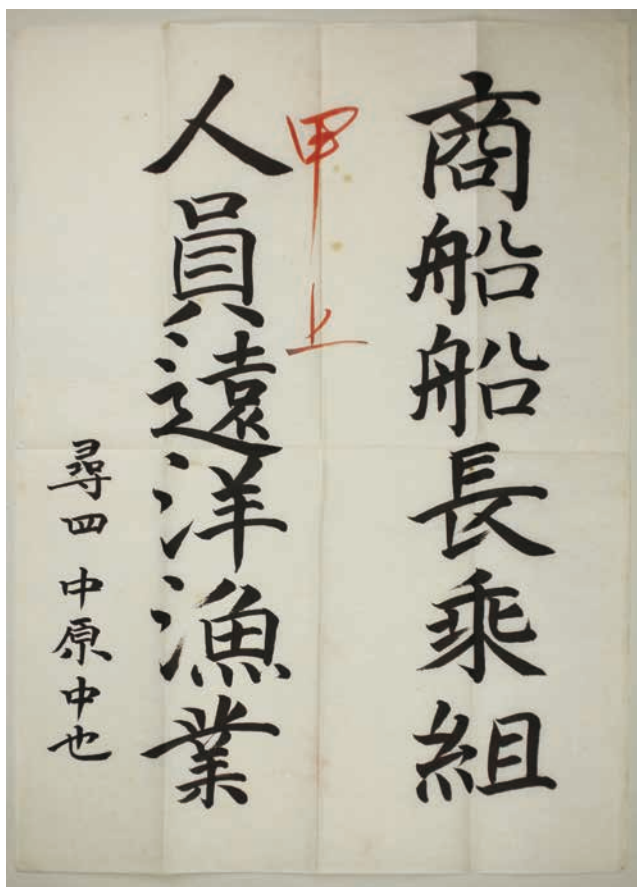 商船船長乗組
甲上
人員遠洋漁業
尋四 中原中也